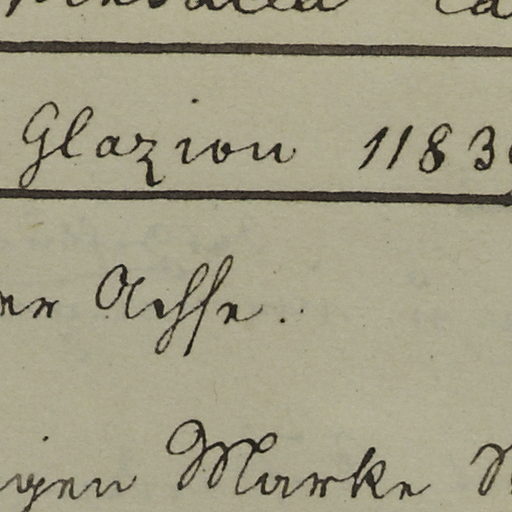 Glaziou 1183
der Achse.
igen Marke